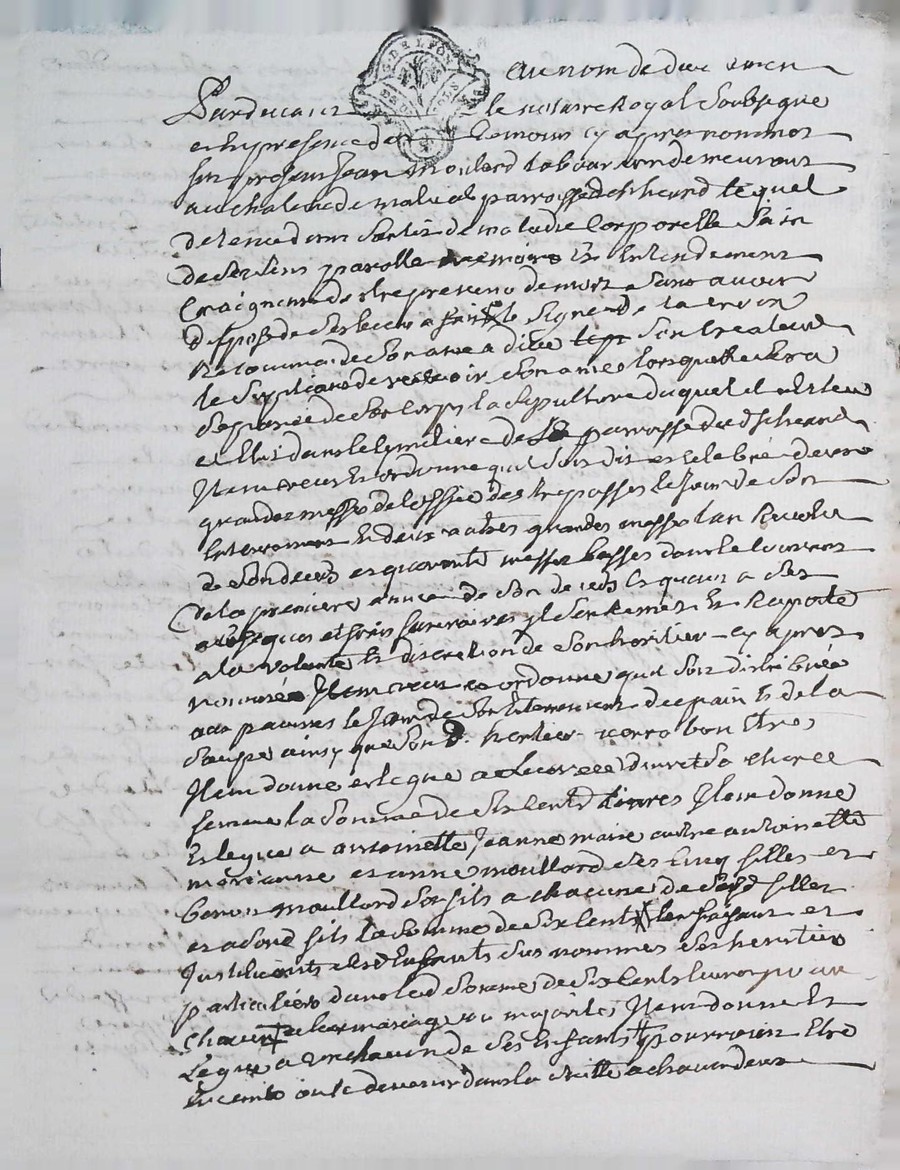 G. DE LYON
au nom de dieu amen
Pardevant le notaire Royal Soubsigne
et En presence des temoins cy apres nommes
fut present Jean moulard laboureur demeurant
au de parroisse lequel
detenu dans Son lit de maladie Corporelle Sain
de Ses Sens parolle memoire Et Entendement
Craignant destre prevenu de mort Sans avoir
dispose de Ses biens a fait le Signe de la croix
Recommande Son ame a dieu Son Createur
le Supliant de recevoir Son ame lorsquelle Sera
Separee de Son Corps la Sepulture duquel il
et Elit dans le Cimetiere de parroisse
Item veut Et ordonne quil Soit dit et celebré
grandes messes de loffice des trepasses le Jour de Son
Enterrement Et deux autres grandes messes lan Revolu
de Son deces et quarante messes basses dans le Courant
de la premiere année de Son deces Et quant a Ses
obseques et frais funeraires il Sen Remet Et Raporte
a la volonté Et discretion de Son heritier cy apres
nommé Item veut et ordonne quil Soit distribuée
aux pauvres le Jour de Son Enterrement du pain Et de la
Soupe ainsy que Son d. heritier verra bon Etre
Item donne et legue a Sa chere
femme la Somme de Six Cents livres Item donne
Et legue a antoinette Jeanne marie autre antoinette
marianne et anne moullard Ses Cinq filles et
benoit moullard Son fils a chacune de Sesd filles
et a Sond fils la Somme de Six Cents les faisant et
Instituant Enfants Sus nommes Ses heritiers
particuliers dans lad Somme de Six Cents livres pour
Chacun a leur mariage ou majorité Item donne Et
Legue a un chacun de Ses Enfants pourroient Etre
Enceinte ou le devenir dans la Suitte a chacun deux